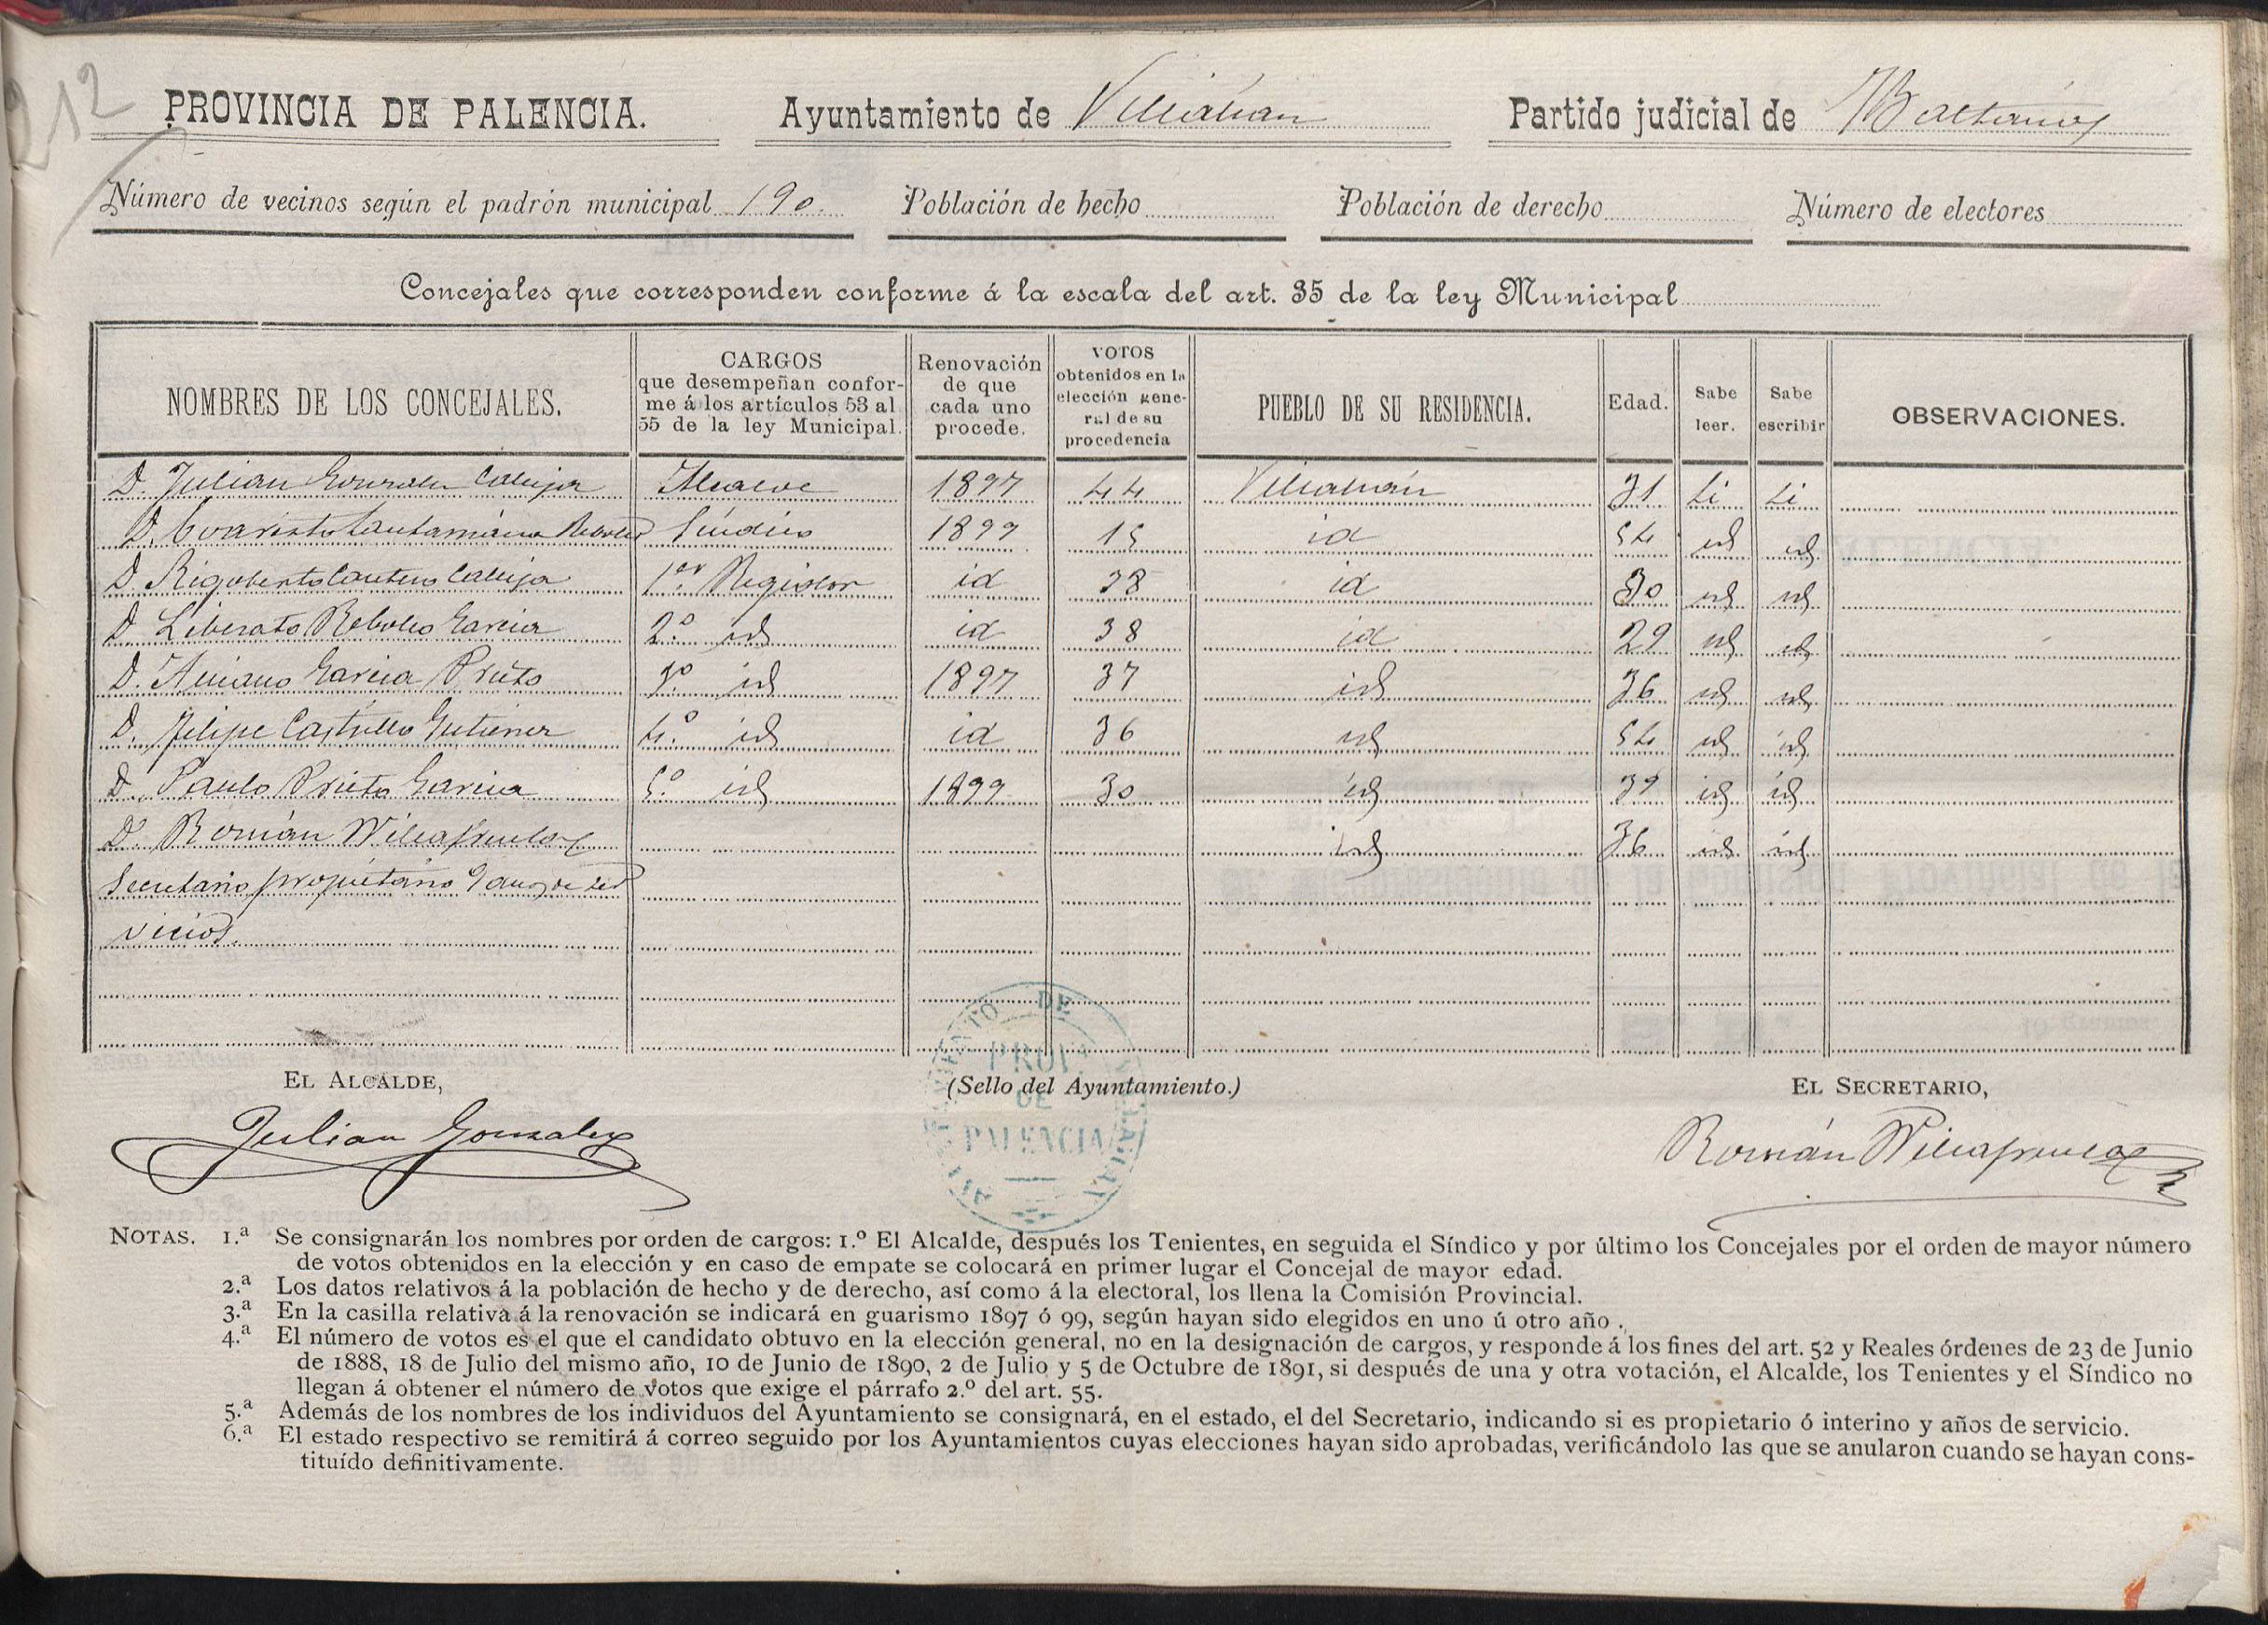 212
PROVINCIA DE PALENCIA. Ayuntamiento de Villahán Partido judicial de Baltanás
Número de vecinos según el padrón municipal 190. Población de hecho Población de derecho Número de electores
Concejales que corresponden conforme á la escala del art. 35 de la ley Municipal
NOMBRES DE LOS CONCEJALES. CARGOS que desempeñan confor-me á los artículos 53 al 55 de la ley Municipal. Renovación de que cada uno procede. VOTOS obtenidos en la elección gene-ral de su procedencia PUEBLO DE SU RESIDENCIA. Edad. Sabe leer. Sabe escribir OBSERVACIONES.
D. Julian Gonzalez Calleja Alcalde 1897 44 Villahán 31 Si Si
D. Evaristo Santamaria Rebollo Síndico 1899 15 id 54 id id
D. Rigoberto Cantero Calleja 1er Regidor id 38 id 30 id id
D. Liberato Rebollo Garcia 2º id id 38 id 29 id id
D. Aniano Garcia Prieto 3º id 1897 37 id 36 id id
D. Felipe Castrillo Gutierrez 4º id id 36 id 54 id id
D. Paulo Prieto Garcia 5º id 1899 30 id 39 id id
D. Román Villafruela id 36 id id
Secretario propietario 9 años de ser
vicios.
EL ALCALDE, (Sello del Ayuntamiento.) EL SECRETARIO,
AYUNTAMIENTO DE VILLAHAN
PROV.
DE
PALENCIA
Julian Gonzalez Román Villafruela
NOTAS. 1.ª Se consignarán los nombres por orden de cargos: 1.º El Alcalde, después los Tenientes, en seguida el Síndico y por último los Concejales por el orden de mayor número
de votos obtenidos en la elección y en caso de empate se colocará en primer lugar el Concejal de mayor edad.
2.ª Los datos relativos á la población de hecho y de derecho, así como á la electoral, los llena la Comisión Provincial.
3.ª En la casilla relativa á la renovación se indicará en guarismo 1897 ó 99, según hayan sido elegidos en uno ú otro año .
4.ª El número de votos es el que el candidato obtuvo en la elección general, no en la designación de cargos, y responde á los fines del art. 52 y Reales órdenes de 23 de Junio
de 1888, 18 de Julio del mismo año, 10 de Junio de 1890, 2 de Julio y 5 de Octubre de 1891, si después de una y otra votación, el Alcalde, los Tenientes y el Síndico no
llegan á obtener el número de votos que exige el párrafo 2.º del art. 55.
5.ª Además de los nombres de los individuos del Ayuntamiento se consignará, en el estado, el del Secretario, indicando si es propietario ó interino y años de servicio.
6.ª El estado respectivo se remitirá á correo seguido por los Ayuntamientos cuyas elecciones hayan sido aprobadas, verificándolo las que se anularon cuando se hayan cons-
tituído definitivamente.